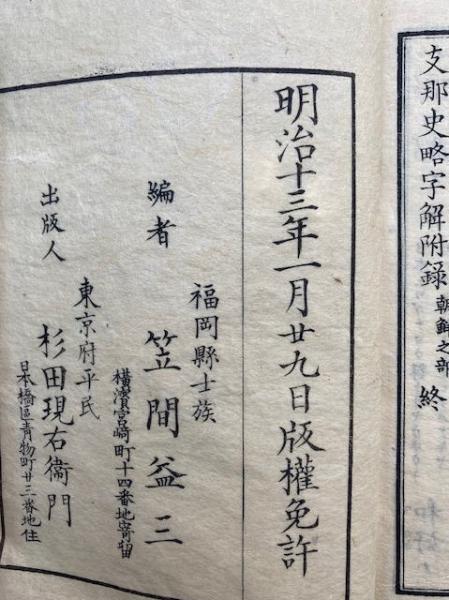 支那史略字解附錄 朝鮮之部 終
明治十三年一月廿九日版權免許
福岡縣士族
編者 笠間益三
橫濱宮崎町十四番地寄留
東京府平民
出版人 杉田現右衞門
日本橋區青物町廿三番地住